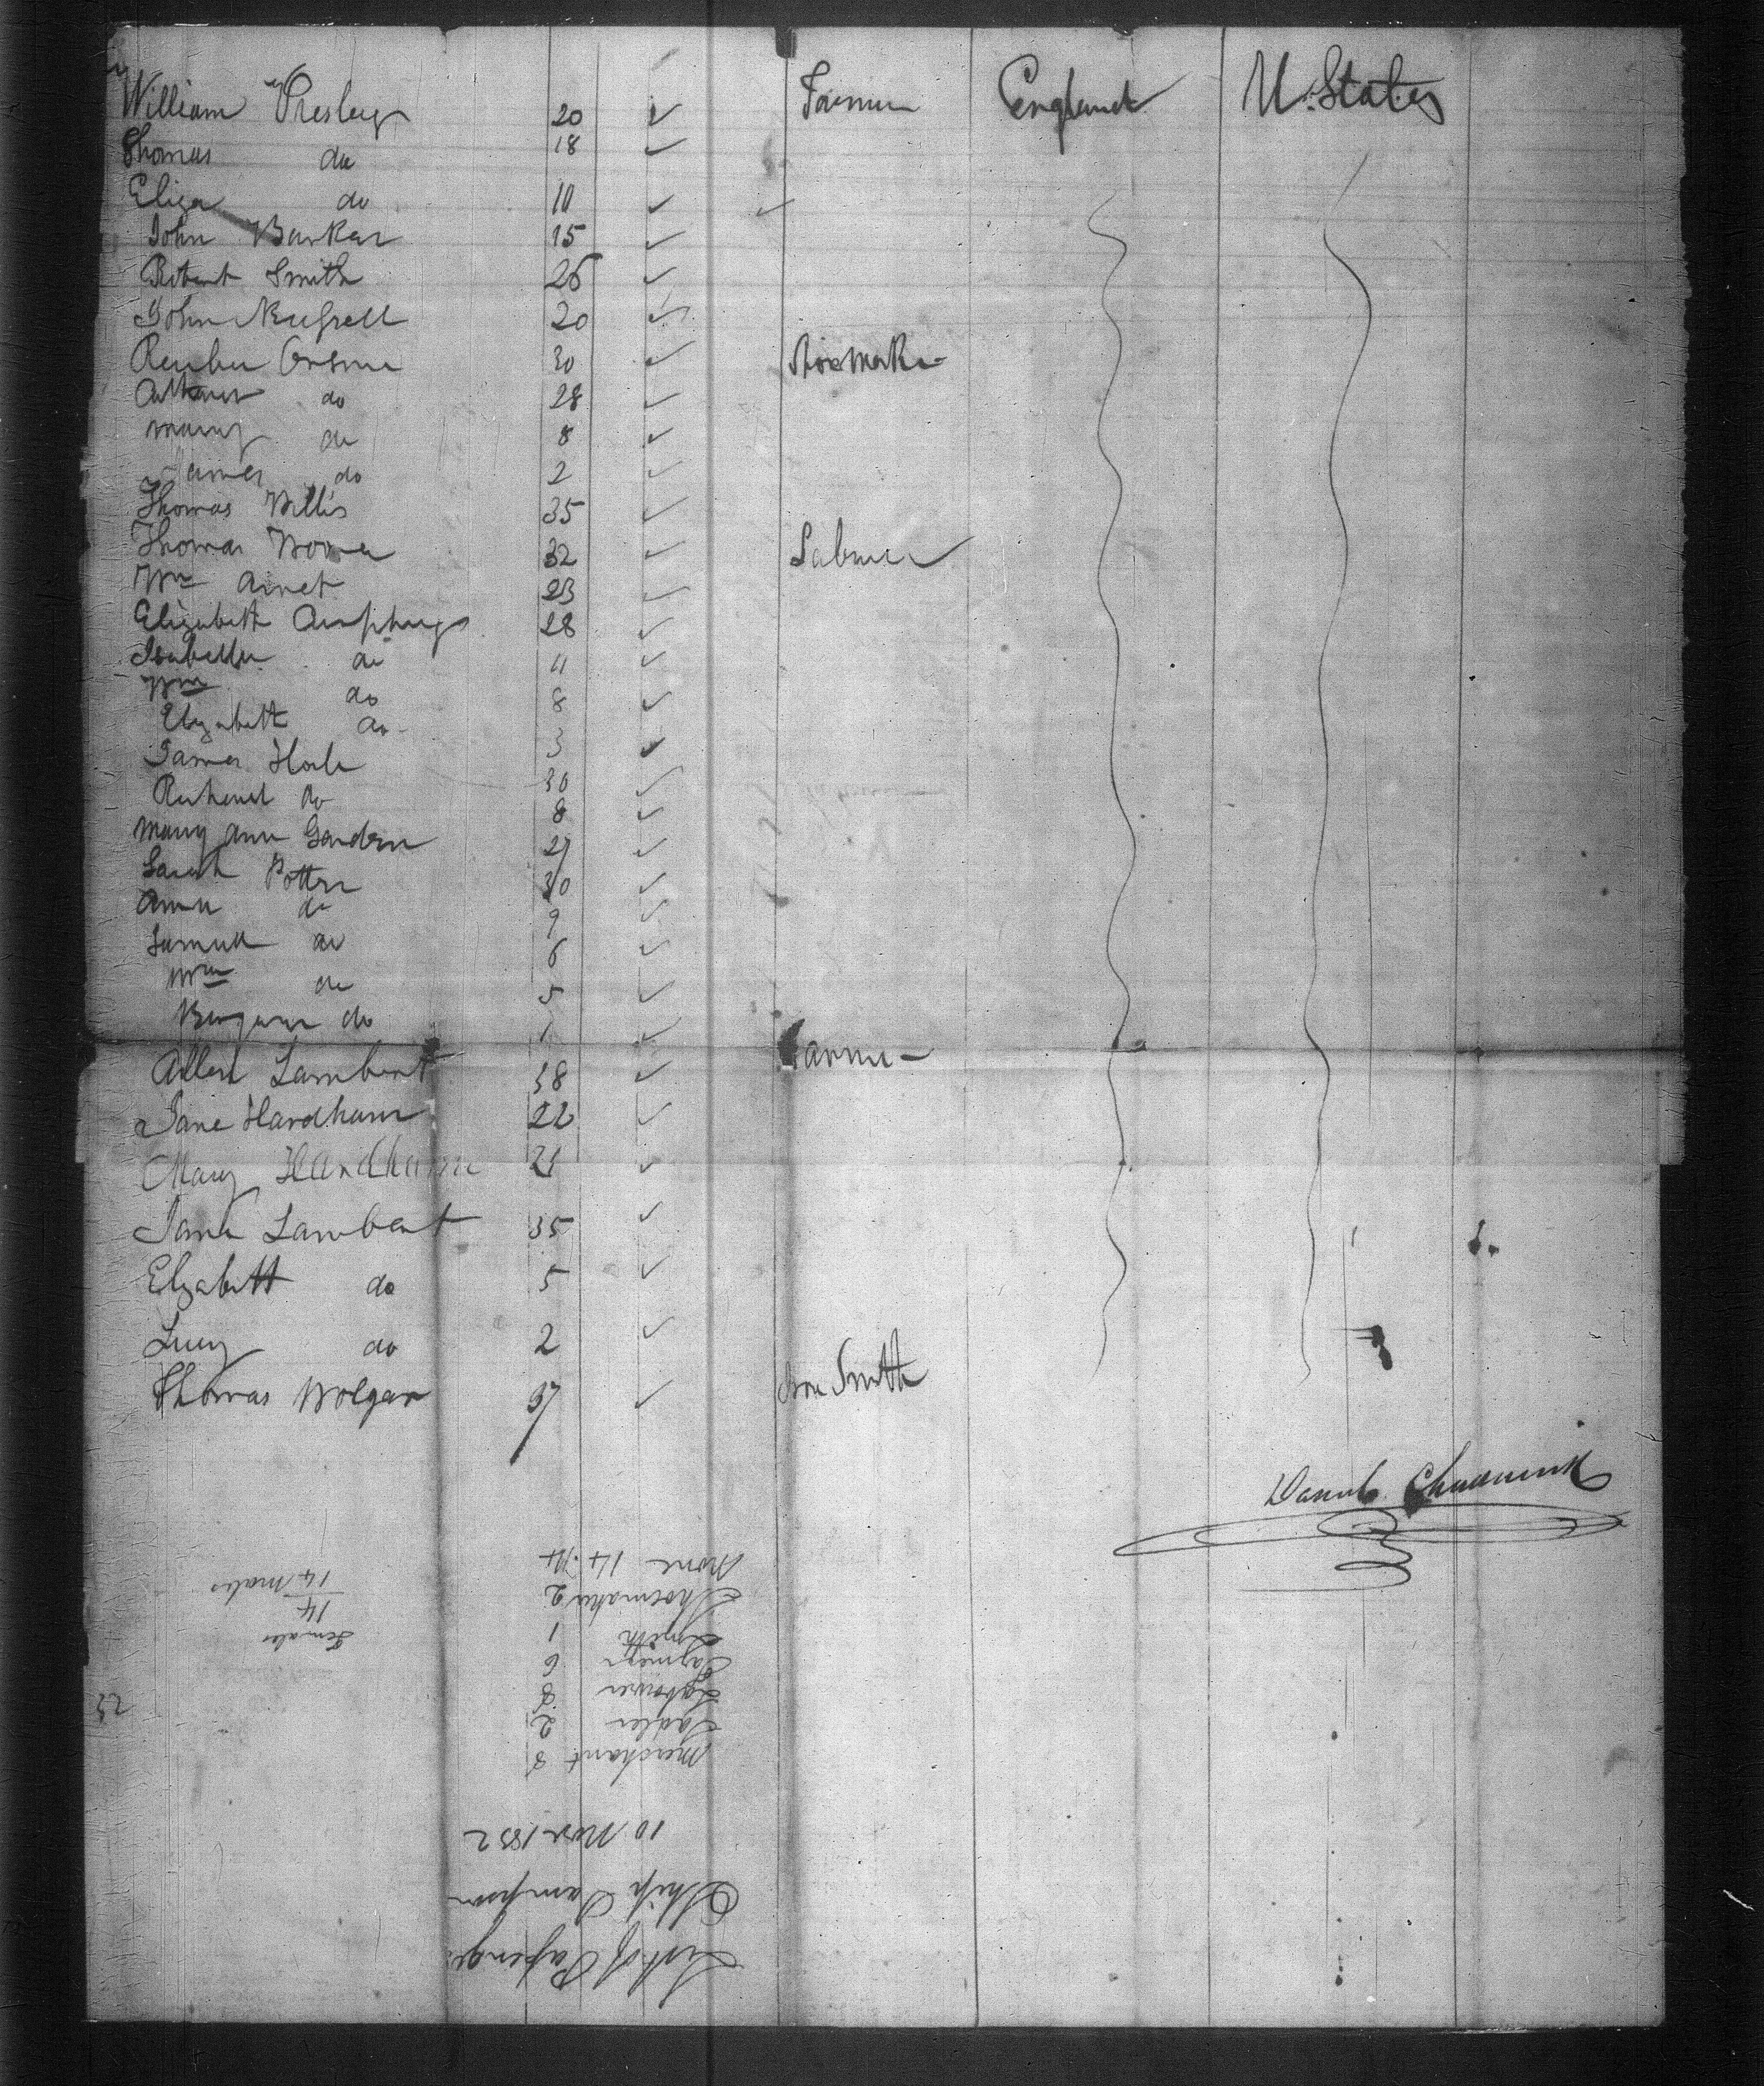 William Presley 20 Farmer England U. States
Thomas do 18
Eliza do 10
John Barker 15
Robert Smith 26
John 20
Reuben 30 Shoemaker
do 28
Mary do 8
James do 2
Thomas Willis 35
Thomas 32 Labourer
Wm 23
Elizabeth 28
Isabella do 11
Wm do 8
Elizabeth do 3
James 30
do 8
Mary Ann 27
Sarah Potter 30
Ann do 9
Samuel do 6
Wm do 5
do 1
Allen Lambert 38 Farmer
Jane Hardham 22
Mary Hardham 21
Jane Lambert 35
Elizabeth do 5
Lucy do 2
Thomas Wolgar 37 Iron Smith
Daniel Chadwick
List of Passengers
Ship Sampson
10 Nov 1832
Merchant
Sadler 2
Labourer
Farmers 6
Smith 1
Shoemaker 2
None 14
Females
14
14 Males